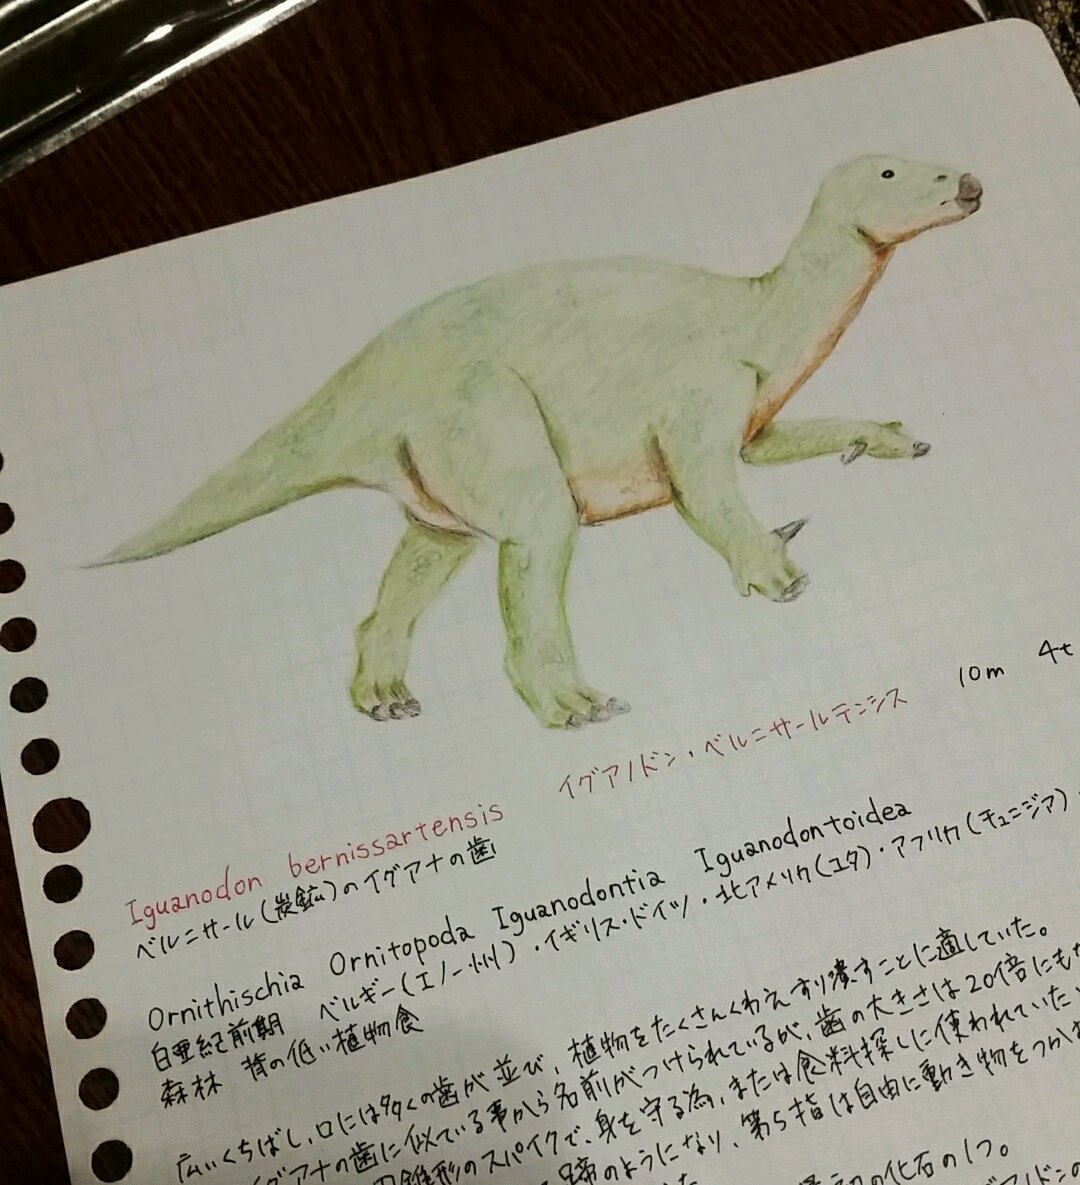 10m 4t
イグアノドン・ベルニサールテンシス
Iguanodon bernissartensis
ベルニサール(炭鉱)のイグアナの歯
Ornithischia Ornitopoda Iguanodontia Iguanodontoidea
白亜紀前期 ベルギー(エノー州)・イギリス・ドイツ・北アメリカ(ユタ)・アフリカ(チュニジア)・
森林 背の低い植物食
広いくちばし、口には多くの歯が並び、植物をたくさんくわえすり潰すことに適していた。
イグアナの歯に似ている事から名前がつけられているが、歯の大きさは20倍にも
円錐形のスパイクで、身を守る為、または食料探しに使われていた
蹄のようになり、第5指は自由に動き物をつか
の化石の1つ。